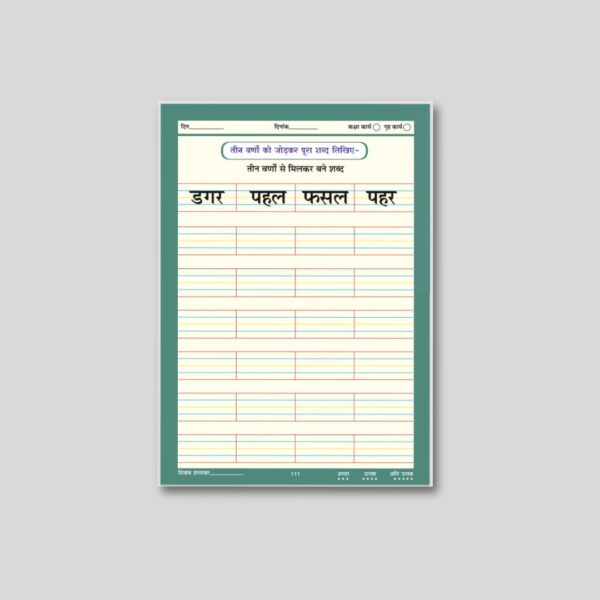 दिन दिनांक कक्षा कार्य गृह कार्य
तीन वर्णों को जोड़कर पूरा शब्द लिखिए-
तीन वर्णों से मिलकर बने शब्द
डगर पहल फसल पहर
शिक्षक हस्ताक्षर 111 अच्छा उत्तम अति उत्तम